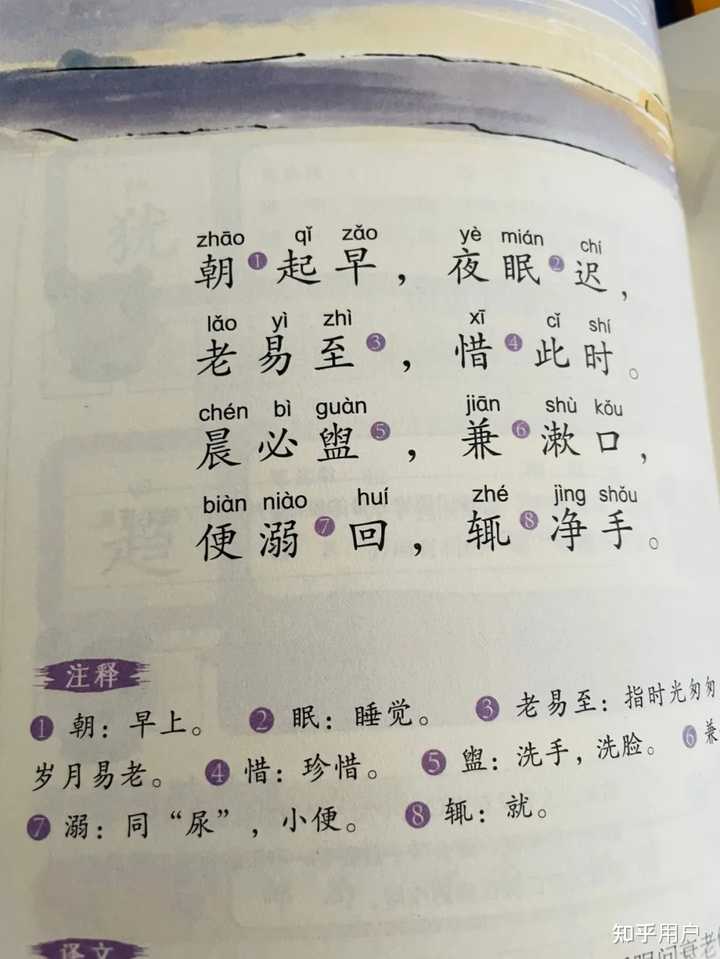 zhāo qǐ zǎo yè mián chí
朝❶起早，夜眠❷迟，
lǎo yì zhì xī cǐ shí
老易至❸，惜❹此时。
chén bì guàn jiān shù kǒu
晨必盥❺，兼❻漱口，
biàn niào huí zhé jìng shǒu
便溺❼回，辄❽净手。
注释
❶ 朝：早上。 ❷ 眠：睡觉。 ❸ 老易至：指时光匆匆
岁月易老。 ❹ 惜：珍惜。 ❺ 盥：洗手，洗脸。 ❻ 兼
❼ 溺：同“尿”，小便。 ❽ 辄：就。
译文
知乎用户